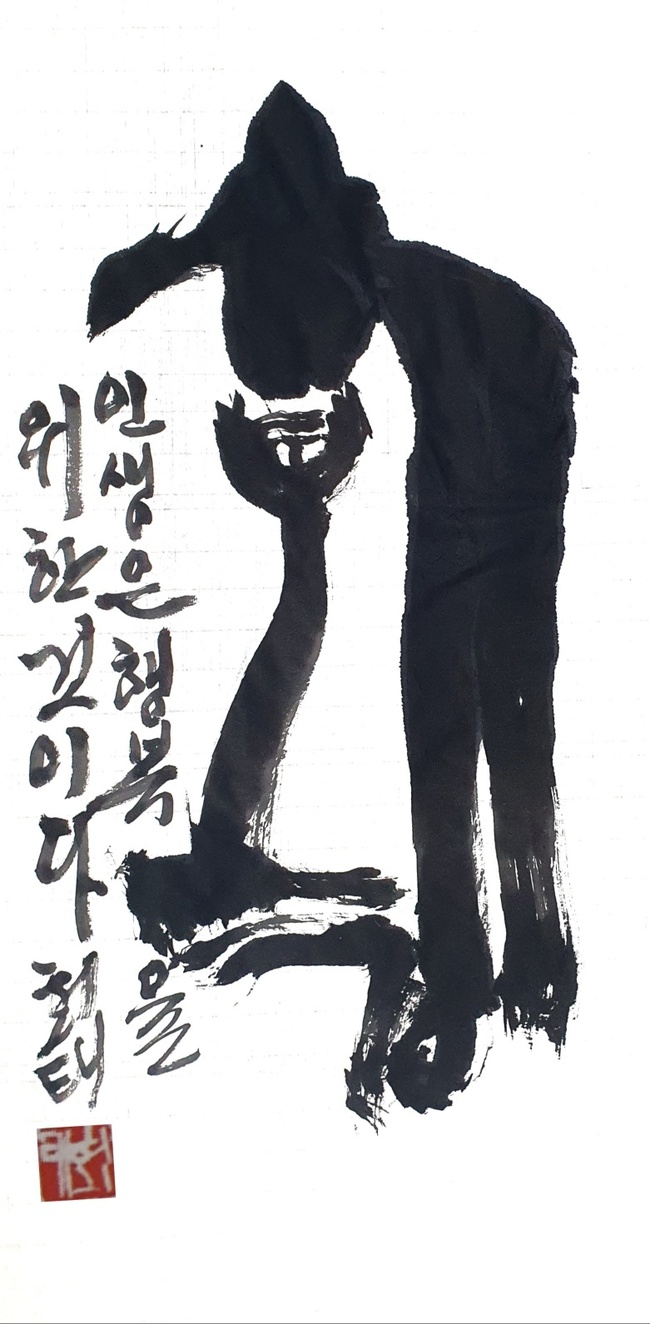 인생은 행복을
위한 것이다 철태